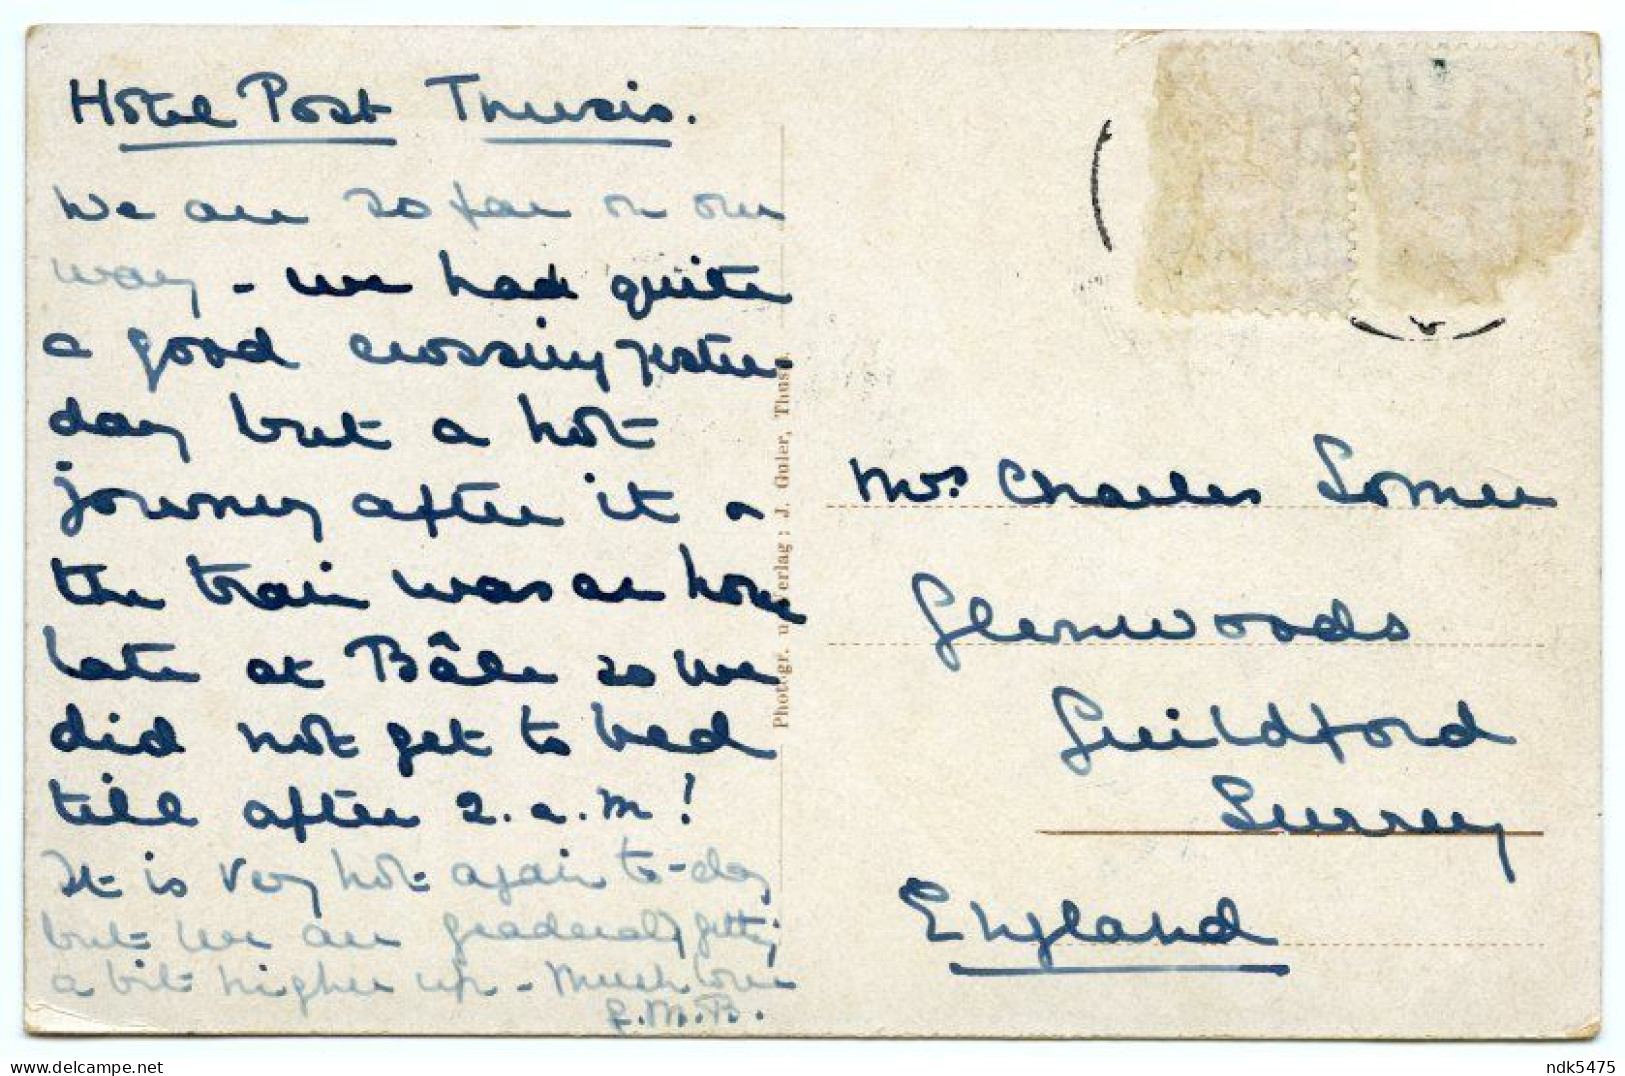 Hotel Post Thusis.
We are so far on our
way - we had quite
a good crossing yester-
day but a hot
journey after it &
the train was an hour
late at Bâle so we
did not get to bed
till after 2.a.m!
It is very hot again to-day
but we are gradually getting
a bit higher up - Much love
M.B.
Photogr. u. Verlag: J. Guler, Thusis.
Mrs. Charles Somer
Glenwoods
Guildford
Surrey
England
ndk5475